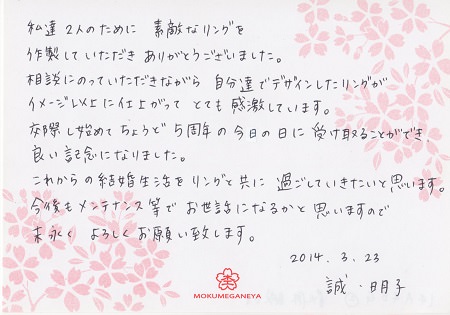 私達2人のために 素敵なリングを
作製していただき ありがとうございました。
相談にのっていただきながら 自分達でデザインしたリングが
イメージ以上に仕上がって とても 感激しています。
交際し始めて ちょうど 5周年の 今日の日に 受け取ることができ、
良い記念になりました。
これからの 結婚生活を リングと共に 過ごしていきたいと思います。
今後も メンテナンス等で お世話になるかと 思いますので
末永く よろしく お願い致します。
2014.3.23
誠・明子
MOKUMEGANEYA